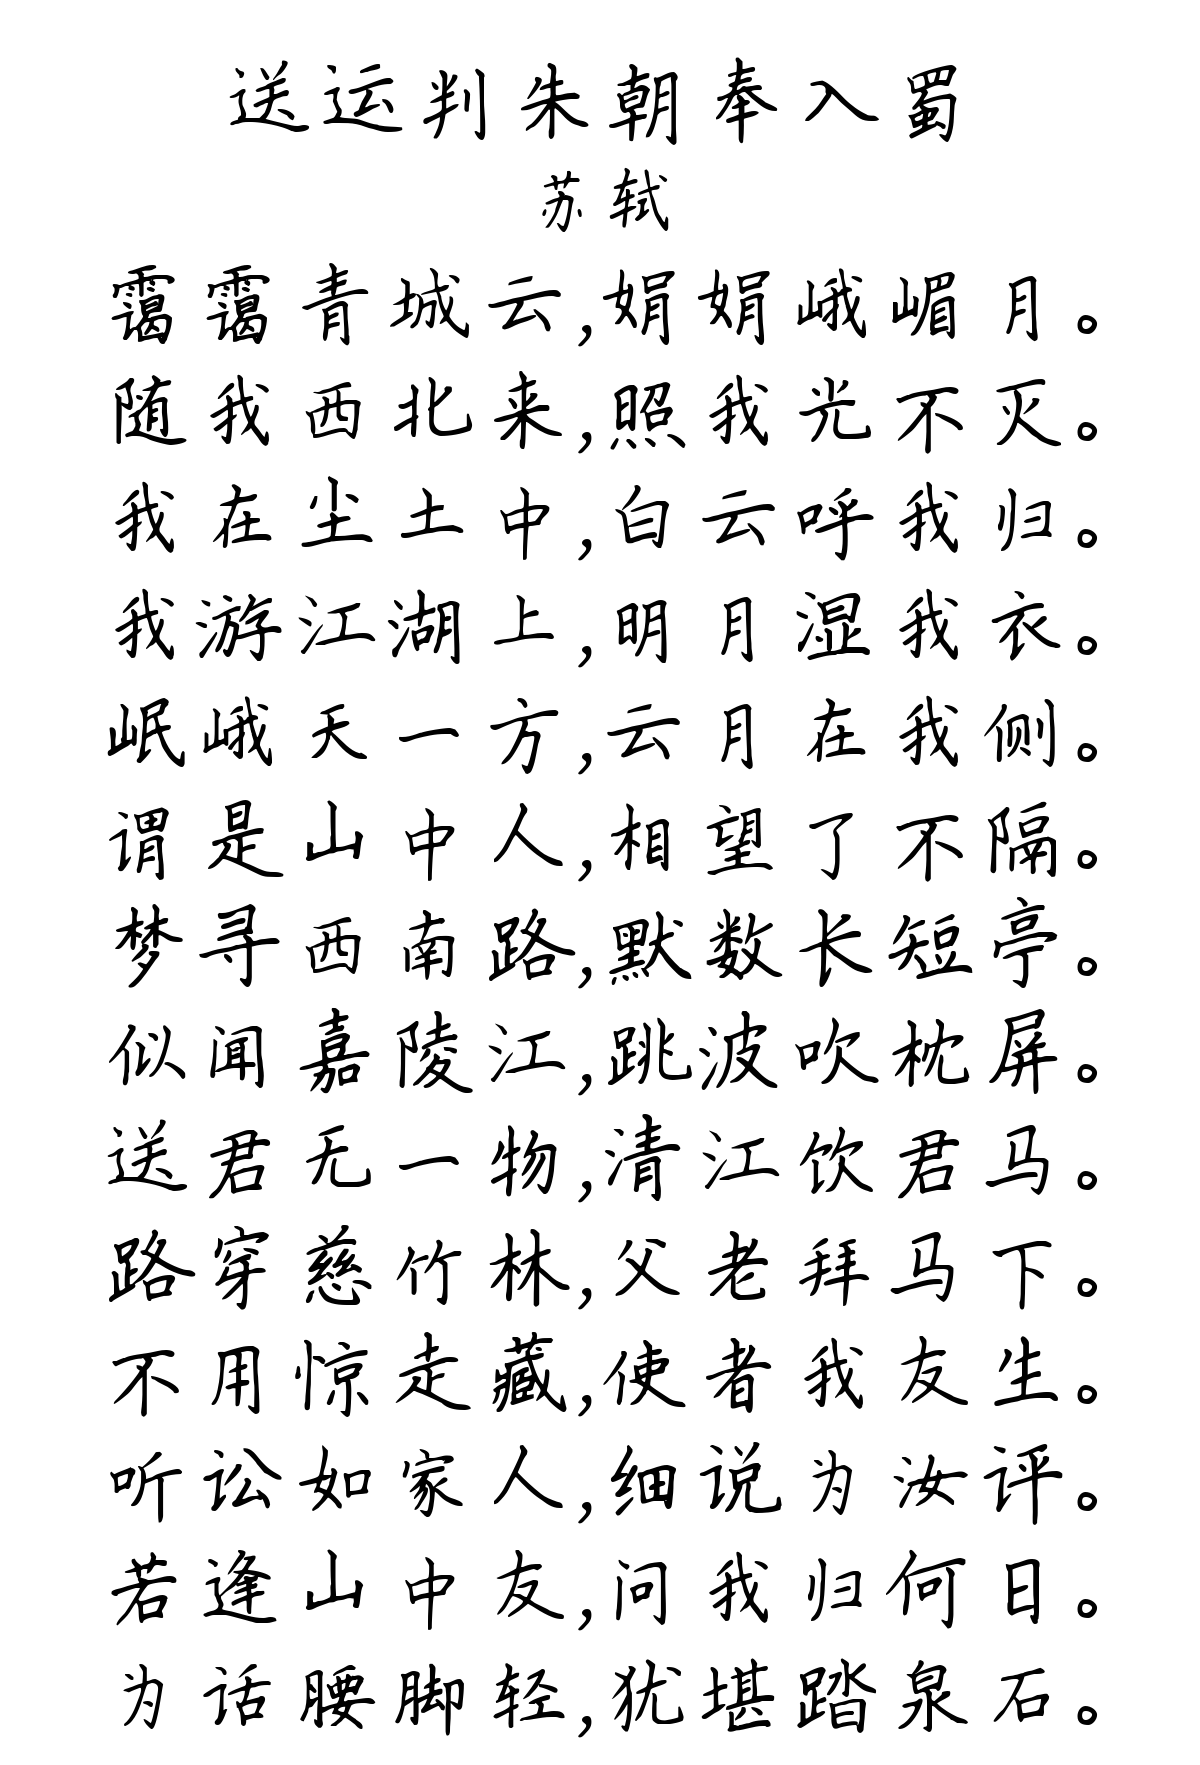 送运判朱朝奉入蜀
苏轼
霭霭青城云,娟娟峨嵋月。
随我西北来,照我光不灭。
我在尘土中,白云呼我归。
我游江湖上,明月湿我衣。
岷峨天一方,云月在我侧。
谓是山中人,相望了不隔。
梦寻西南路,默数长短亭。
似闻嘉陵江,跳波吹枕屏。
送君无一物,清江饮君马。
路穿慈竹林,父老拜马下。
不用惊走藏,使者我友生。
听讼如家人,细说为汝评。
若逢山中友,问我归何日。
为话腰脚轻,犹堪踏泉石。